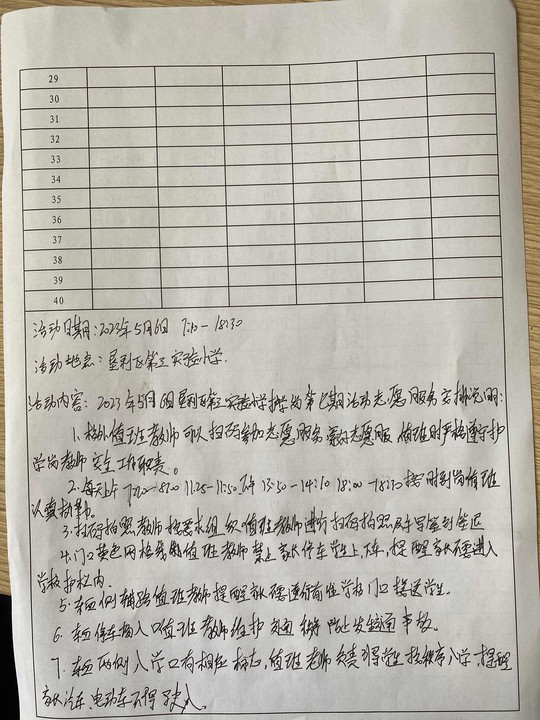 29
30
31
32
33
34
35
36
37
38
39
40
活动日期:2023年5月6日 7:10-18:30
活动地点:垦利区第三实验小学.
活动内容:2023年5月6日垦利区第三实验小学护学岗第七期活动志愿服务安排说明:
1.校外值班教师可以扫码参加志愿服务 志愿服 值班时严格遵守护
学岗教师安全工作职责。
2.每天上午7:10-8:00 11:25-11:50 下午13:50-14:10 18:00-18:30按时到岗值班
认真执勤。
3.扫码拍照教师按要求组织值班教师进行扫码拍照及书写签到签退
4.门口黄色网格线值班教师禁止家长停车学生上下车,提醒家长不要进入
学校护栏内.
5.车辆侧辅路值班教师提醒家长不要逆行前往学校门口接送学生.
6.车辆停车场入口值班教师维护交通秩序防止发生交通事故.
7.东西两侧入学口有相应标志,值班老师负责引导学生按秩序入学,提醒
家长汽车、电动车不得驶入.